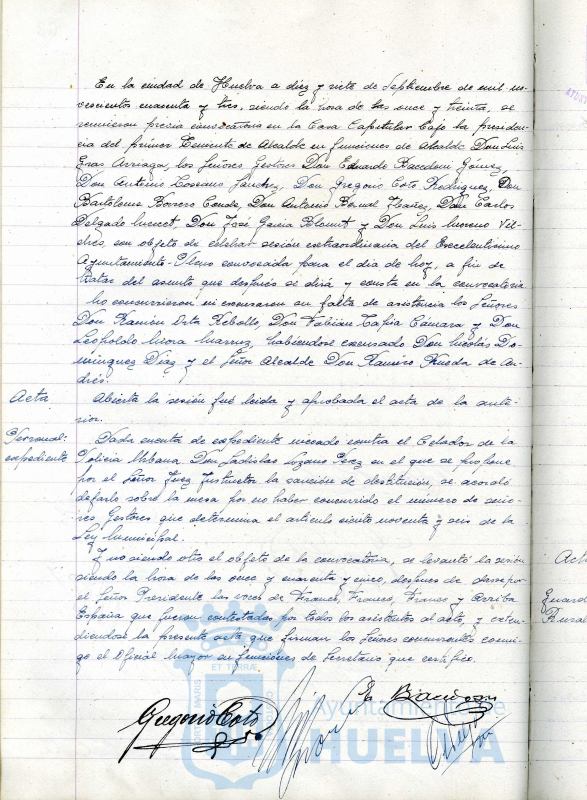 En la ciudad de Huelva a diez y siete de Septiembre de mil no-
vescientos cuarenta y tres, siendo la hora de las once y treinta, se
reunieron previa convocatoria en la Casa Capitular bajo la presiden-
cia del primer Teniente de Alcalde en funciones de Alcalde Don Luis
Arriaga, los Señores Gestores Don Eduardo Bacedoni Gómez,
Don Antonio Sánchez, Don Gregorio Coto Rodríguez, Don
Bartolomé Borrero Conde, Don Antonio Ibañez, Don Carlos
Delgado Don José Garcia y Don Luis Moreno Vil-
ches, con objeto de celebrar sesión extraordinaria del Excelentísimo
Ayuntamiento-Pleno convocada para el dia de hoy, a fin de
tratar del asunto que despues se dirá y consta en la convocatoria
No concurrieron ni excusaron su falta de asistencia los Señores
Don Ramón Orta Rebollo, Don Fabian Tapia Cámara y Don
Leopoldo Mora habiéndose excusado Don Nicolás Do-
minguez Diaz y el Señor Alcalde Don Ramiro Rueda de An-
drés.
Acta
Abierta la sesión fué leida y aprobada el acta de la ante-
rior.
Personal:
expediente
Dada cuenta de expediente incoado contra el Celador de la
Policia Urbana Don Ladislao Lozano Perez en el que se propone
por el Señor Juez Instructor la sanción de destitución, se acordó
dejarlo sobre la mesa por no haber concurrido el número de seño-
res Gestores que determina el articulo ciento noventa y seis de la
Ley Municipal.
Y no siendo otro el objeto de la convocatoria, se levantó la sesión
siendo la hora de las once y cuarenta y cinco, despues de darse por
el Señor Presidente las voces de Franco, Franco, Franco y Arriba
España que fueron contestadas por todos los asistentes al acto, y exten-
diendose la presente acta que firman los Señores concurrentes conmi-
go el Oficial Mayor en funciones de Secretario que certifico.
Gregorio Coto
E. Bacedoni
Ayuntamiento de
HUELVA
Act
Guard
Rural